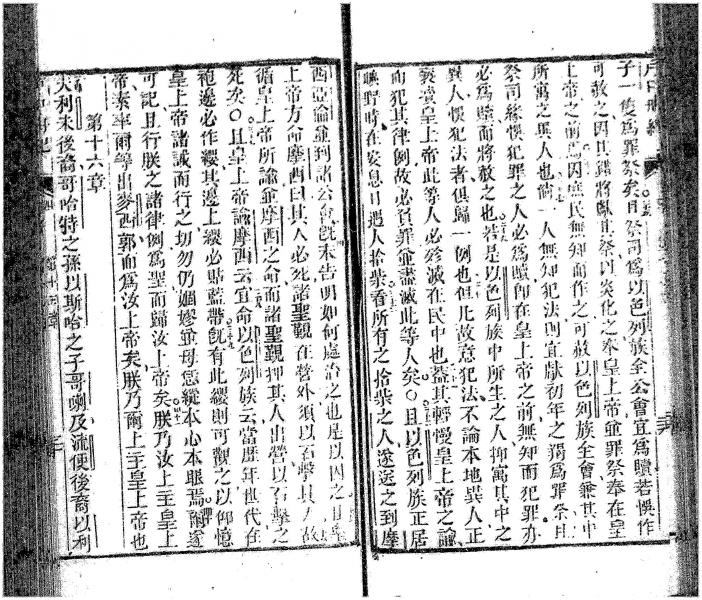 子一隻爲罪祭矣且祭司爲以色列族全公會宜爲贖若悞作
可赦之因其錯將獻其祭以炎化之奉皇上帝並罪祭奉在皇
上帝之前爲因庶民無知而作之可赦以色列族全會兼其中
所寓之異人也倘一人無知犯法則宜獻初年之羯爲罪祭且
祭司緣悞犯罪之人必爲贖卽在皇上帝之前無知而犯罪亦
必爲贖而將赦之也若是以色列族中所生之人抑寓其中之
異人悞犯法者俱歸一例也但凡故意犯法不論本地異人正
褻瀆皇上帝此等人必殄滅在民中也蓋其輕慢皇上帝之諭
而犯其律例故必負罪並盡滅此等人矣○且以色列族正居
曠野時在安息日遇人拾柴看所有之拾柴之人遂送之到摩
西亞倫並到諸公會旣未告明如何處治之也是以囚之
上帝方命摩西曰其人必死諸聖覲在營外須以石擊其人故
循皇上帝所諭並摩西之命而諸聖覲押其人出營以石擊之
死矣○且皇上帝諭摩西云宜命以色列族云當歷年世代在
袍邊必作繸其邊上繸必貼藍帶旣有此繸則可觀之以仰憶
皇上帝諸誡而行之切勿仍婟嫪並毋恁縱本心本眼焉爾遂
可記且行朕之諸律例爲聖而歸汝上帝矣朕乃汝上主皇上
帝素率爾等出麥西郭而爲汝上帝矣朕乃爾上主皇上帝也
第十六章
夫利未後裔哥哈特之孫以斯哈之子哥喇及流便後裔以利